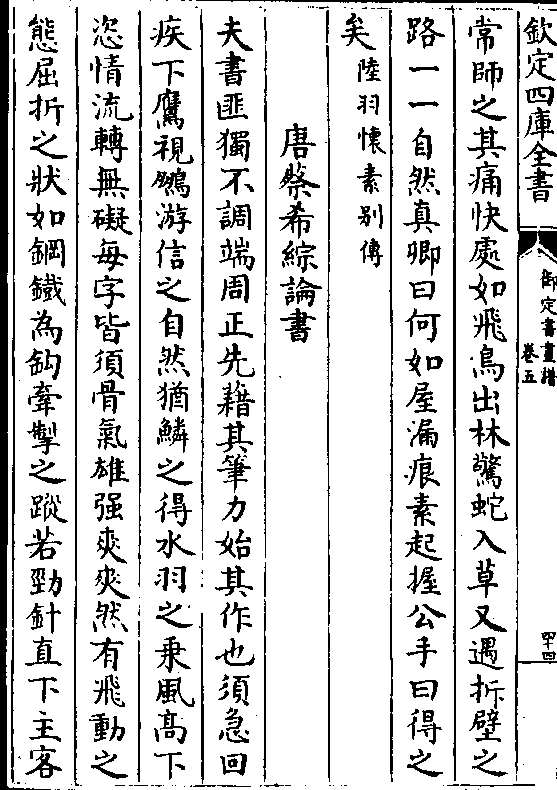 欽定四庫全書
御定書畫譜
卷五
四十四
常師之其痛快處如飛鳥出林驚蛇入草又遇拆壁之
路一一自然真卿曰何如屋漏痕素起握公手曰得之
矣陸羽懷素別傳
唐蔡希綜論書
夫書匪獨不調端周正先藉其筆力始其作也須急回
疾下鷹視鵬游信之自然猶鱗之得水羽之乘風高下
恣情流轉無礙每字皆須骨氣雄强爽爽然有飛動之
態屈折之狀如鋼鐵為鈎牽掣之蹤若勁針直下主客